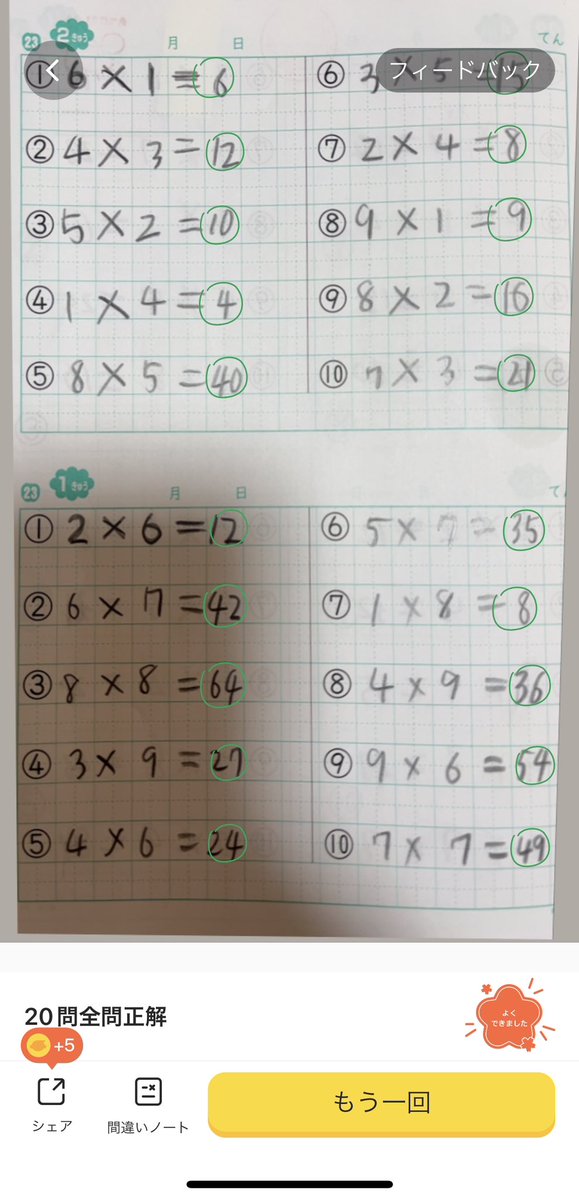 23 2きゅう 月 日 てん
① 6 × 1 = 6
② 4 × 3 = 12
③ 5 × 2 = 10
④ 1 × 4 = 4
⑤ 8 × 5 = 40
フィードバック
⑥ 3 × 5 = 15
⑦ 2 × 4 = 8
⑧ 9 × 1 = 9
⑨ 8 × 2 = 16
⑩ 7 × 3 = 21
23 1きゅう 月 日
① 2 × 6 = 12
② 6 × 7 = 42
③ 8 × 8 = 64
④ 3 × 9 = 27
⑤ 4 × 6 = 24
⑥ 5 × 7 = 35
⑦ 1 × 8 = 8
⑧ 4 × 9 = 36
⑨ 9 × 6 = 54
⑩ 7 × 7 = 49
20問全問正解
よく
できました
+5
シェア
間違いノート
もう一回